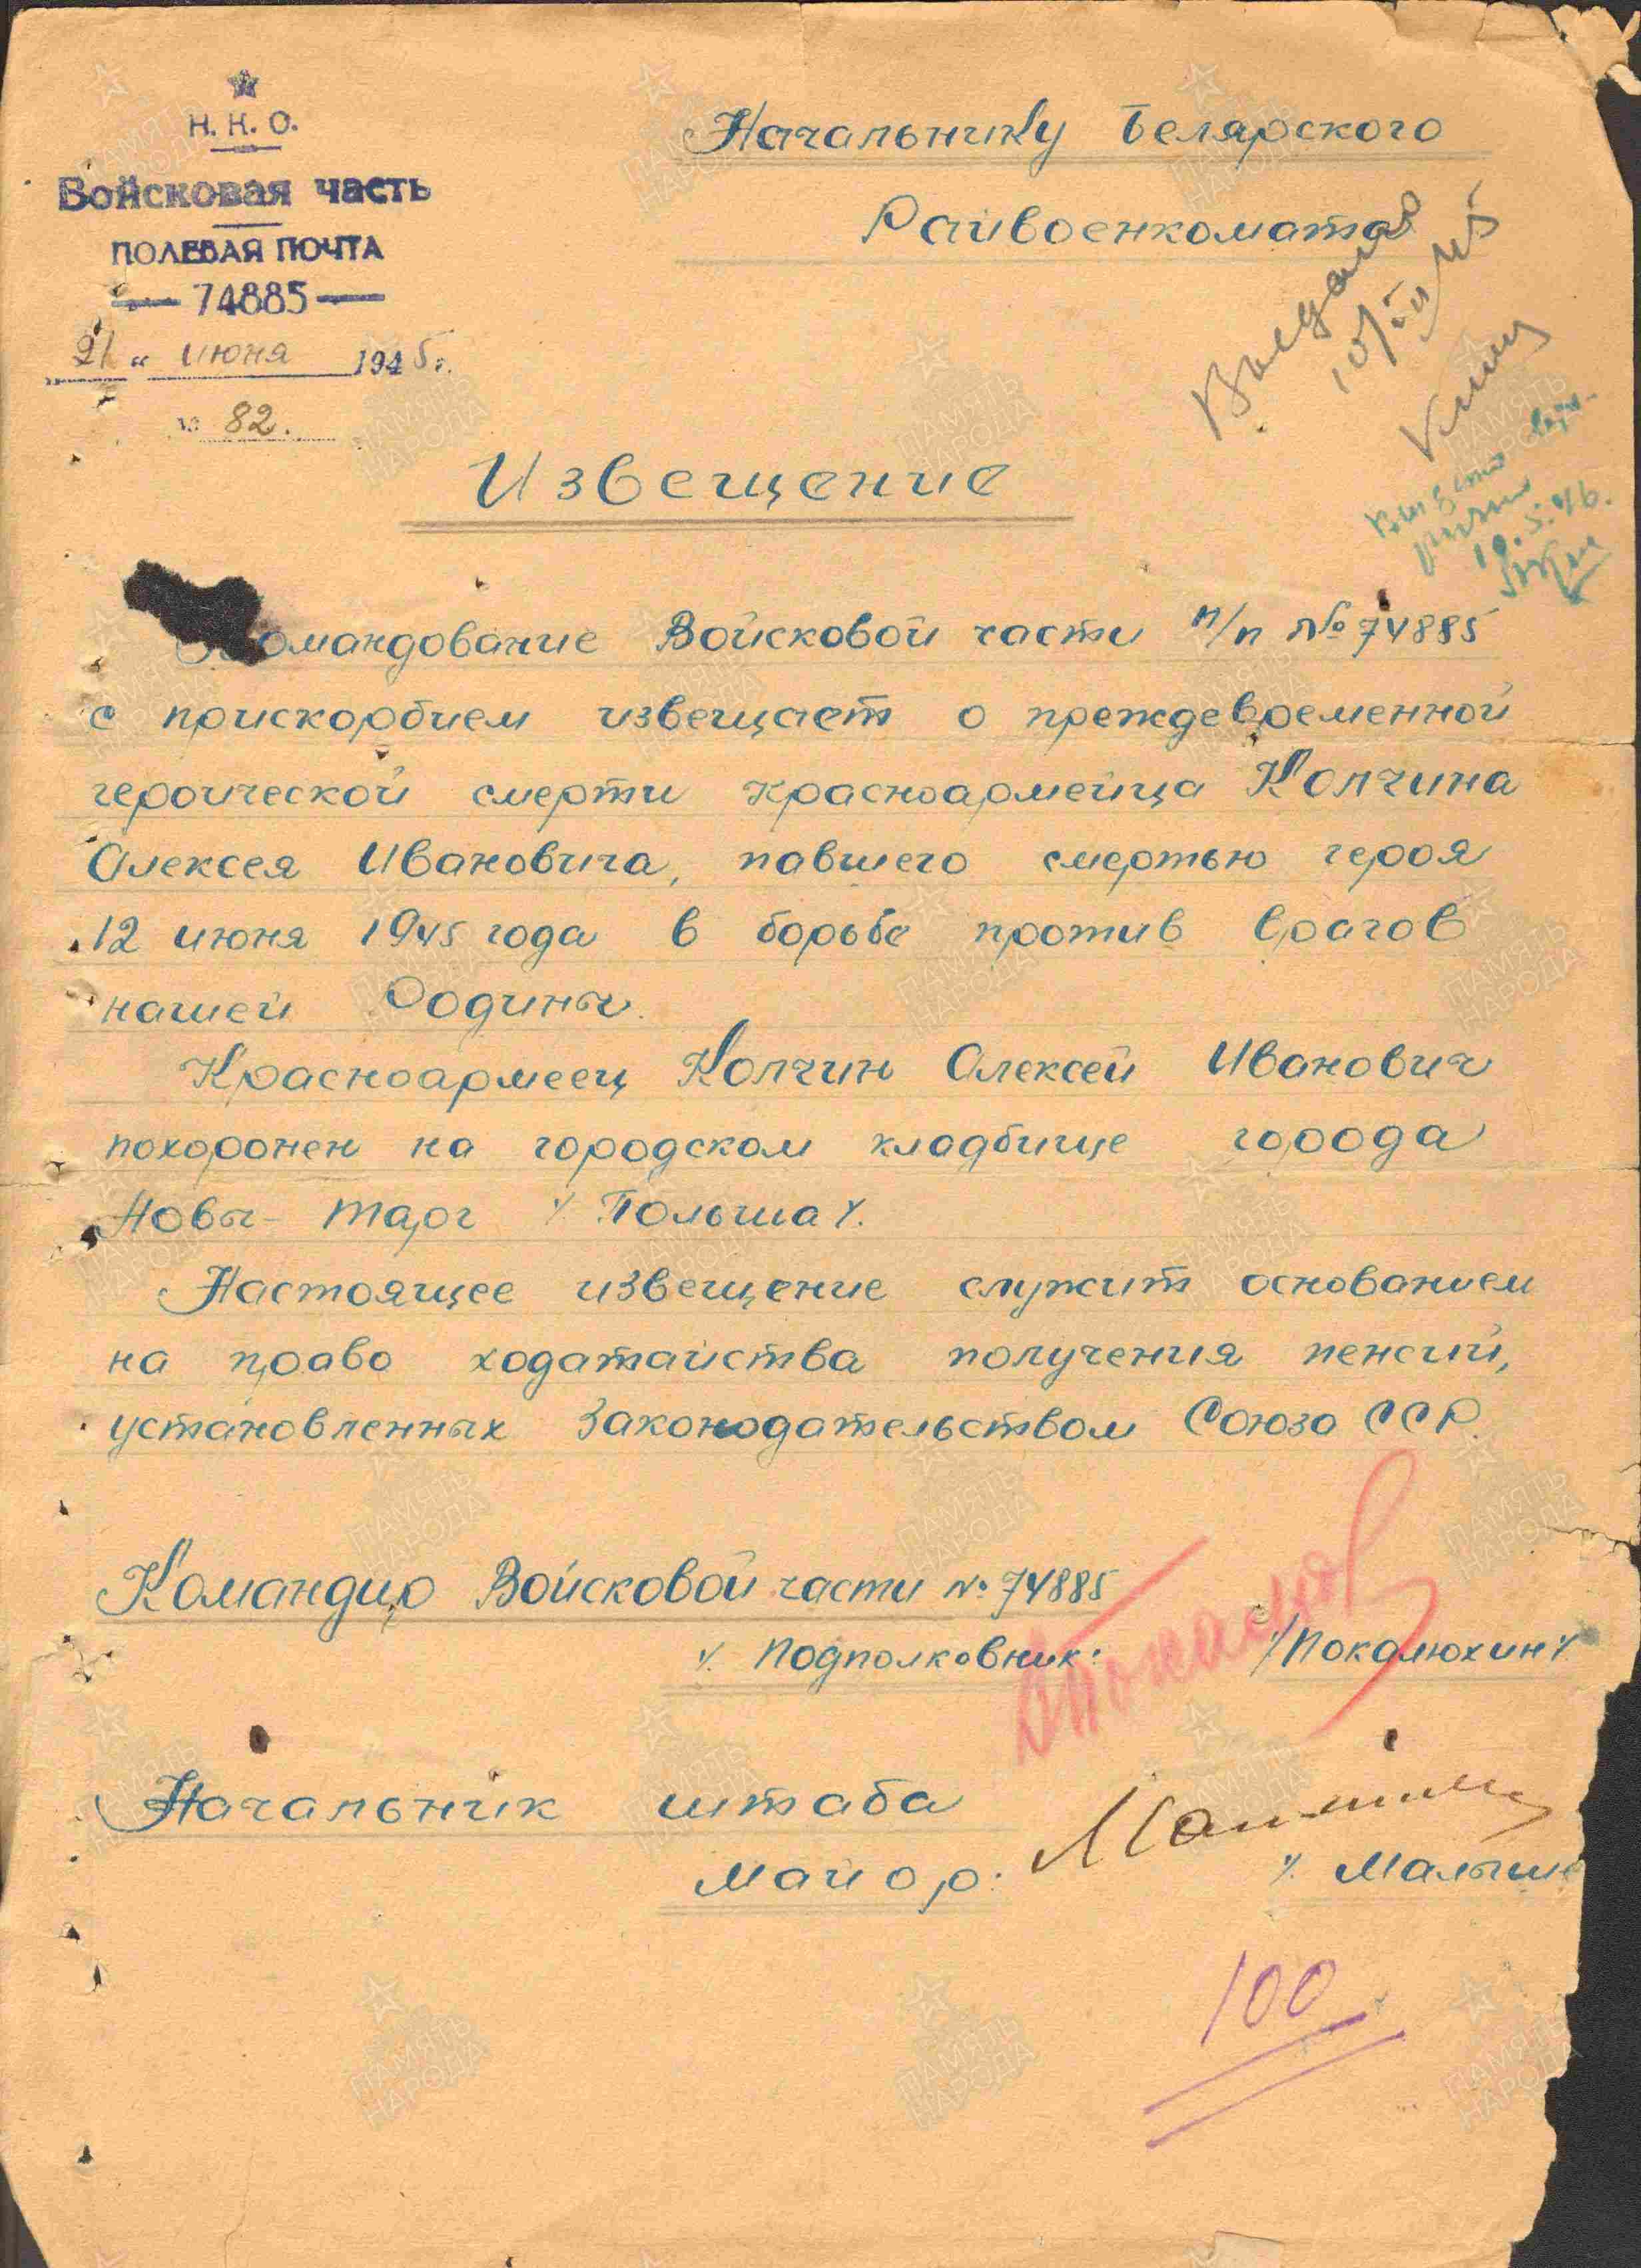 Н. К. О.
Войсковая часть
ПОЛЕВАЯ ПОЧТА
— 74885 —
21 " июня 1945 г.
№ 82.
Начальнику Белярского
Райвоенкомата
10/VII 45
19.5.46.
Извещение
Командование Войсковой части п/п №74885
с прискорбием извещает о преждевременной
героической смерти красноармейца Колчина
Алексея Ивановича, павшего смертью героя
12 июня 1945 года в борьбе против врагов
нашей Родины.
Красноармеец Колчин Алексей Иванович
похоронен на городском кладбище города
Новы-Тарг /. Польша /.
Настоящее извещение служит основанием
на право ходатайства получения пенсий,
установленных Законодательством Союза ССР.
Командир Войсковой части № 74885
/. Подполковник: /Покалюхин/.
Начальник штаба
Майор: /. Малыше
100
ПАМЯТЬ НАРОДА